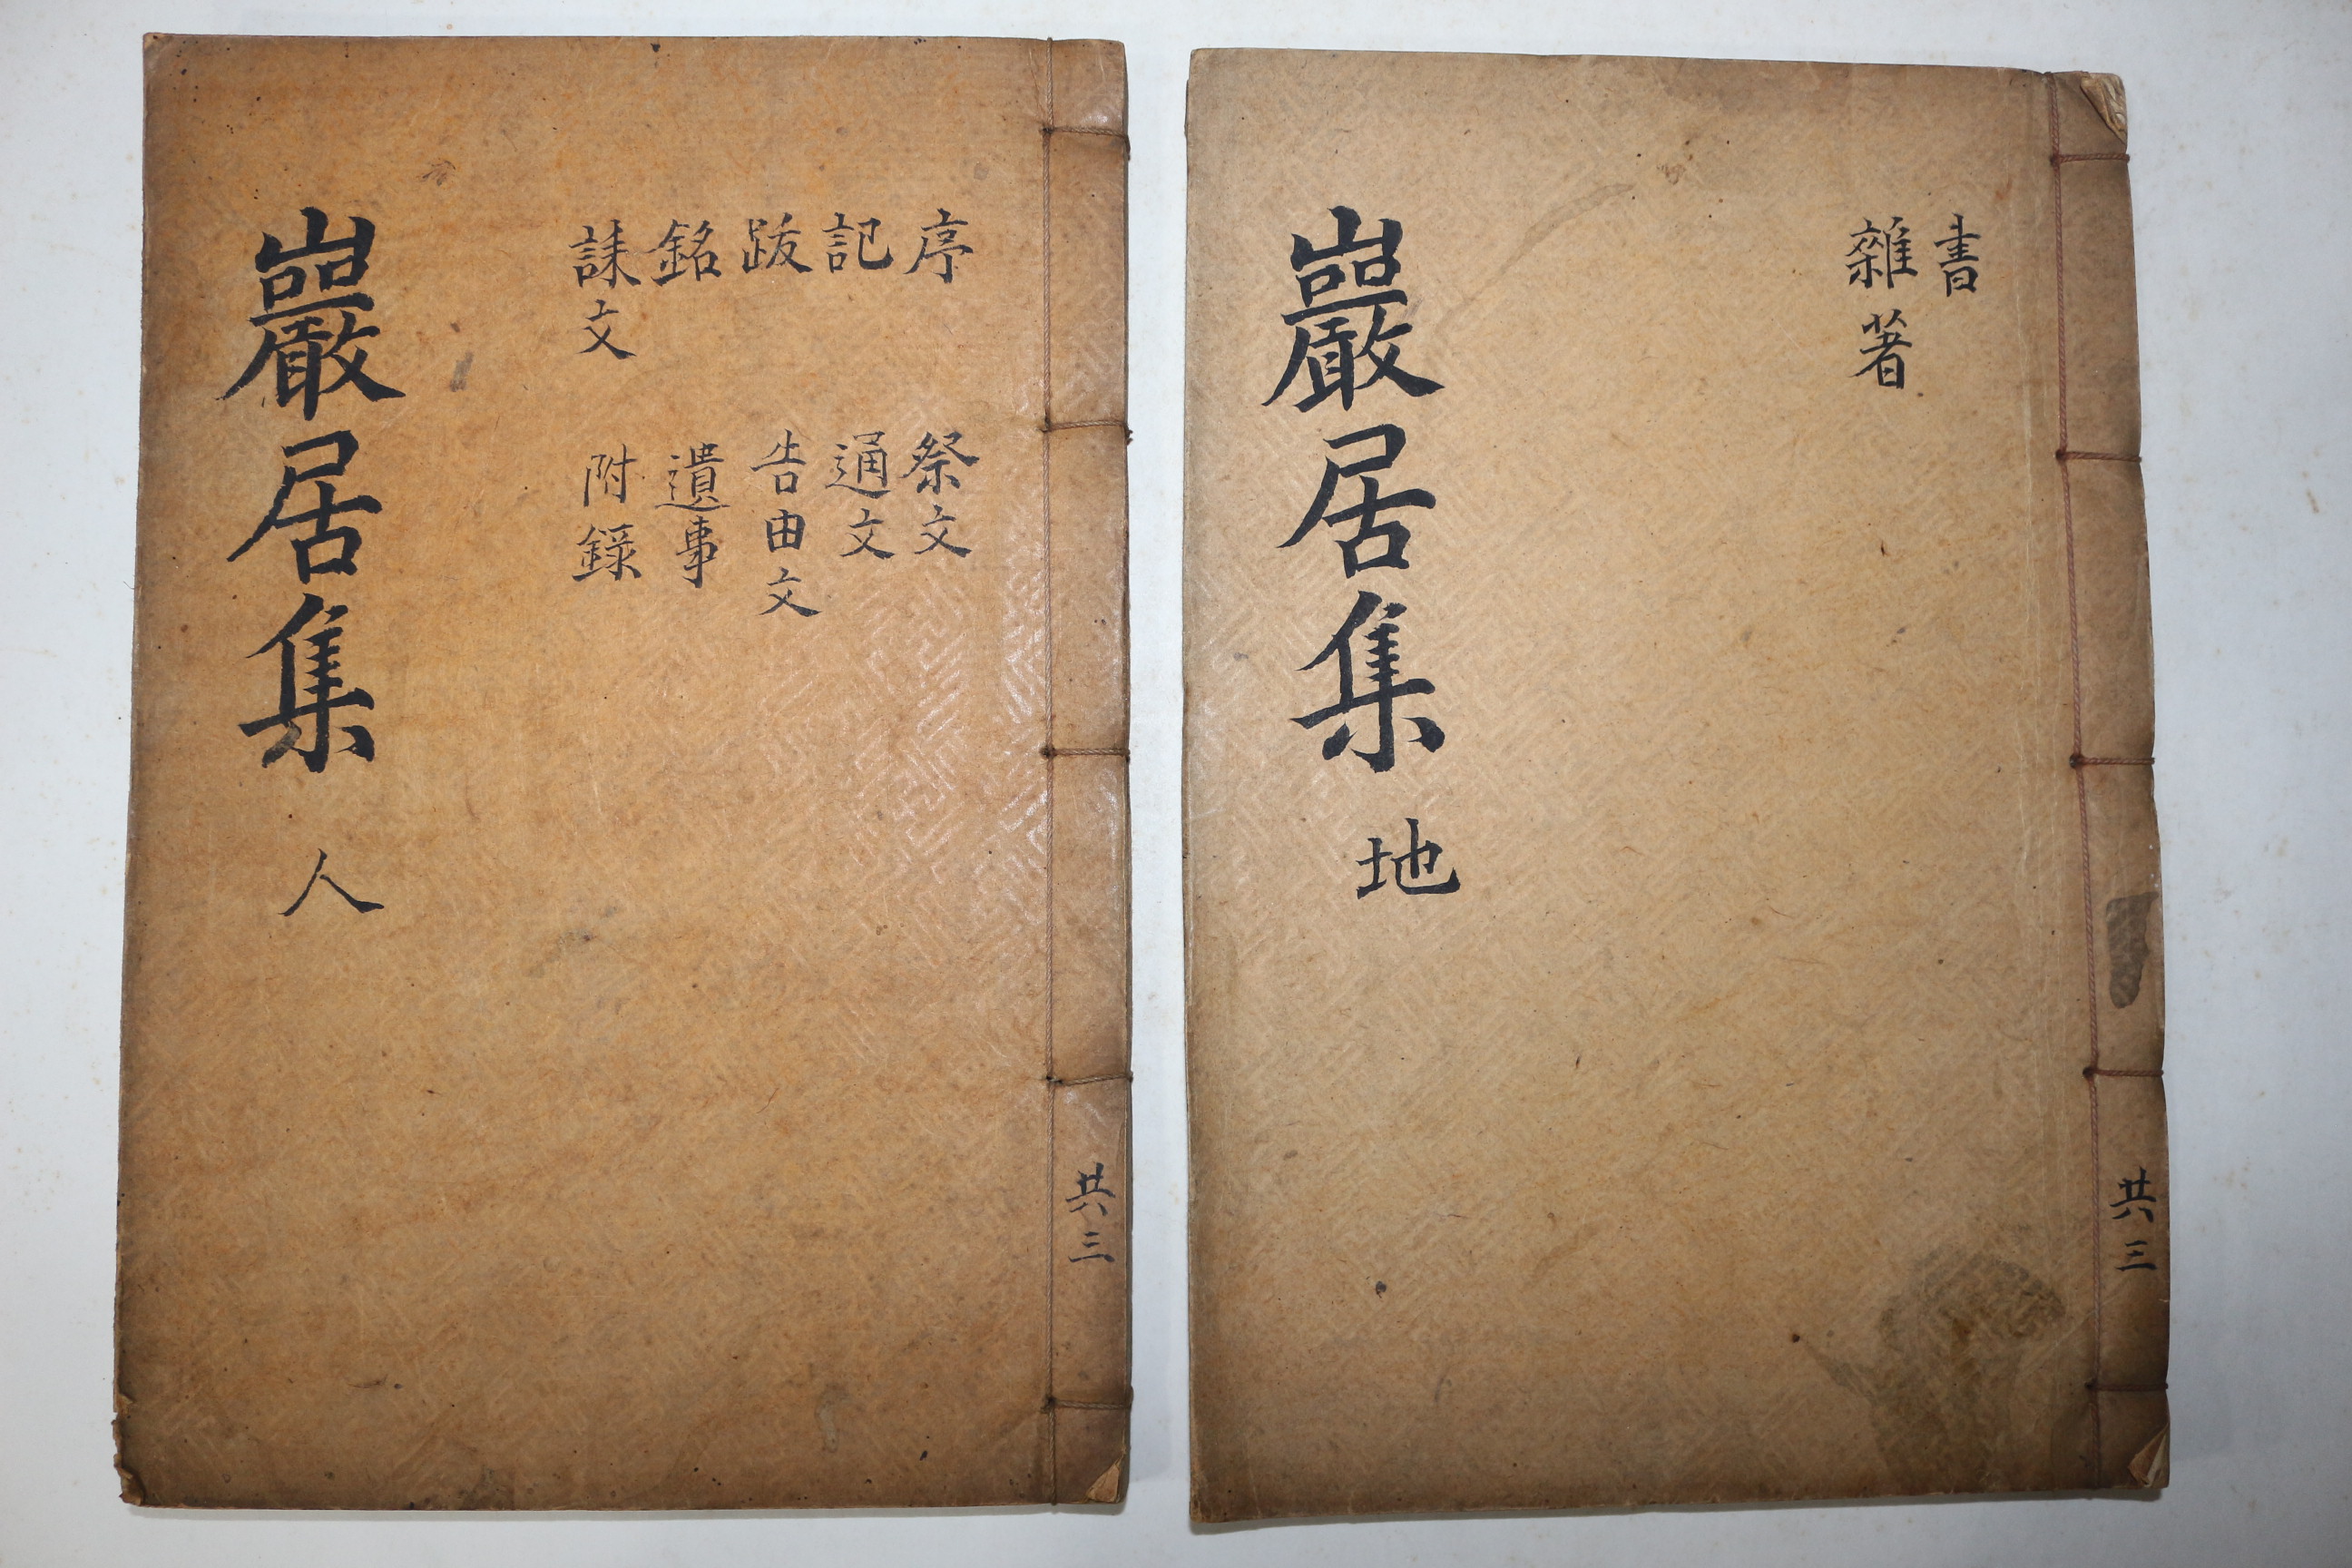 書
雜著
巖居集 地
共三
序 祭文
記 通文
跋 告由文
銘 遺事
誄文 附錄
巖居集 人
共三